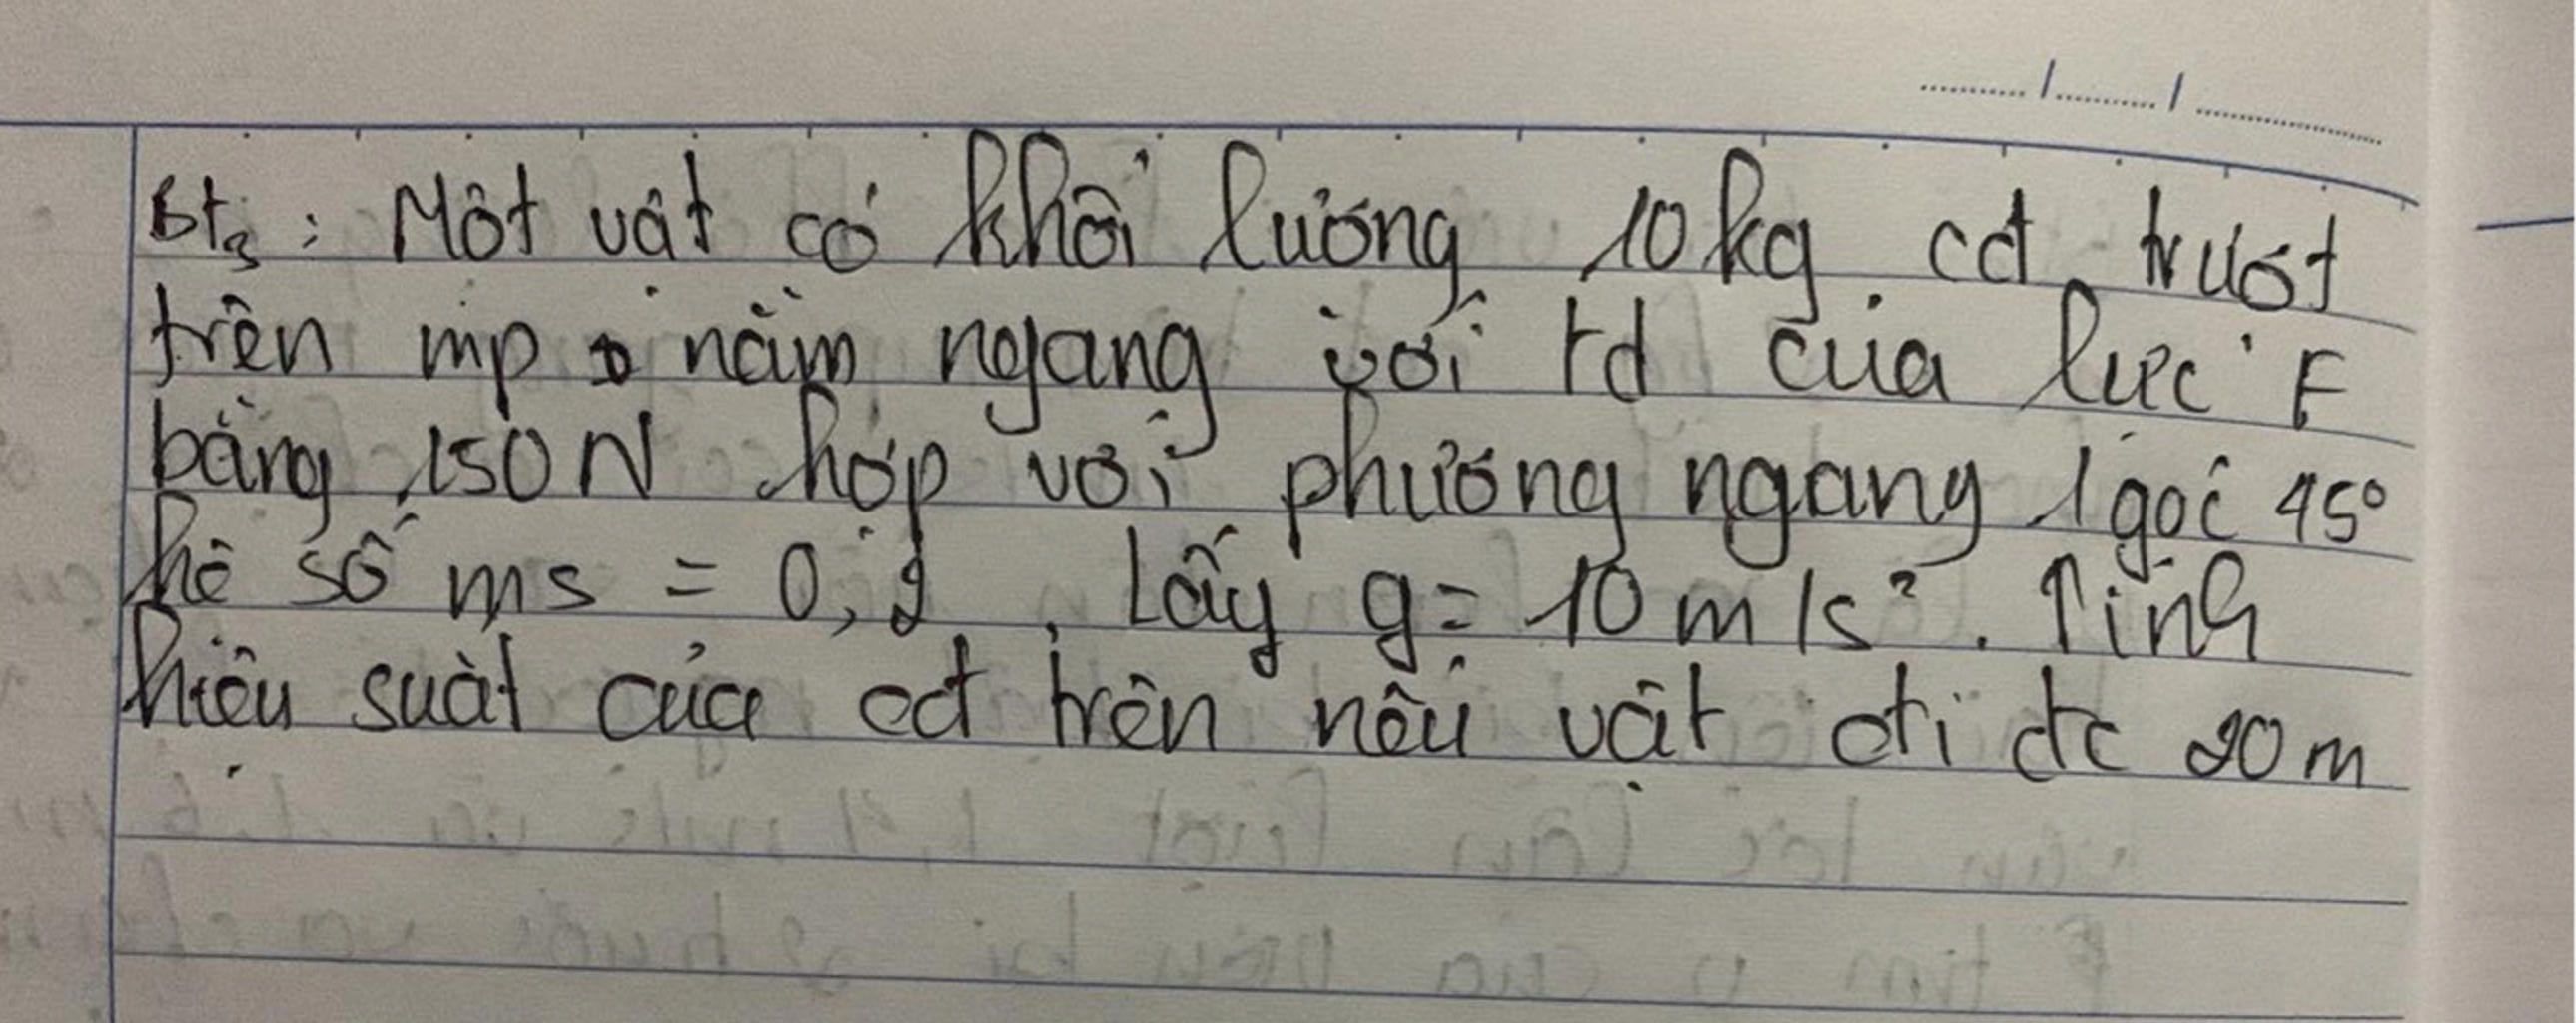 Bt3: Một vật có khối lượng 10kg cđ trượt
trên mp nằm ngang với td của lực F
bằng 150N hợp với phương ngang 1 góc 45°
hệ số ms = 0,2. Lấy g= 10m/s². Tính
hiệu suất của cđ trên nếu vật đi đc 20m